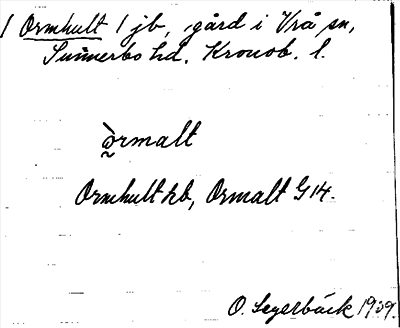 1 Ormhult / jb, gård i Vrå sn,
Sunnerbo hd. Kronob. l.
òrmalt
Ormhult kb, Ormalt G 14.
O. Segerbäck 1909.